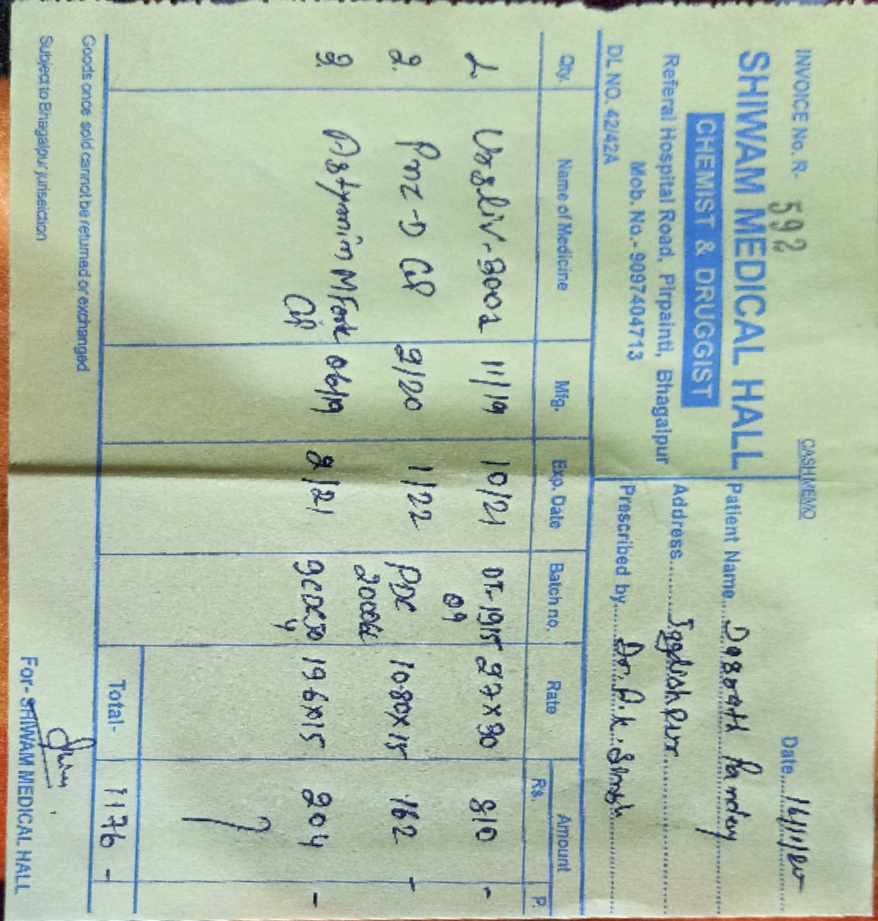 INVOICE No. R- 592
CASH MEMO
SHIWAM MEDICAL HALL
CHEMIST & DRUGGIST
Referal Hospital Road, Pirpainti, Bhagalpur
Mob. No.- 9097404713
DL NO. 42/42A
Date
Patient Name Dasrath Pandey
Address
Prescribed by Dr. A.K. Singh
Qty. Name of Medicine Mfg. Exp. Date Batch no. Rate Amount
Rs. P.
1. 11/19 10/21 27x30 810 -
2. Pnz-D Cap 2/20 1/22 10.80x15 162 -
3. Astymin M Forte 06/19 2/21 204 -
Cap
Total- 1176 -
Goods once sold cannot be returned or exchanged
Subject to Bhagalpur juriseiction
For- SHIWAM MEDICAL HALL